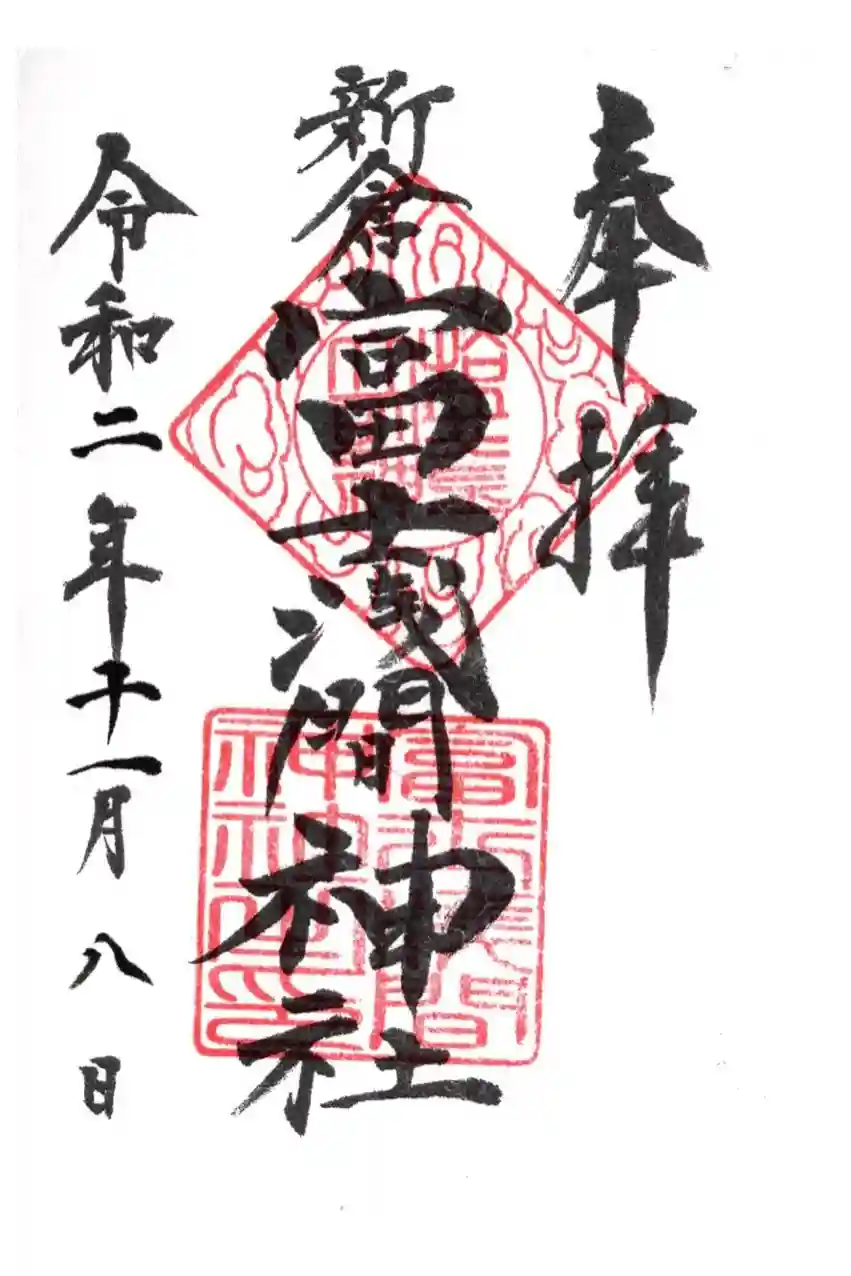 奉拝
新倉富士浅間神社
令和二年十一月八日
富士浅間
神社之印